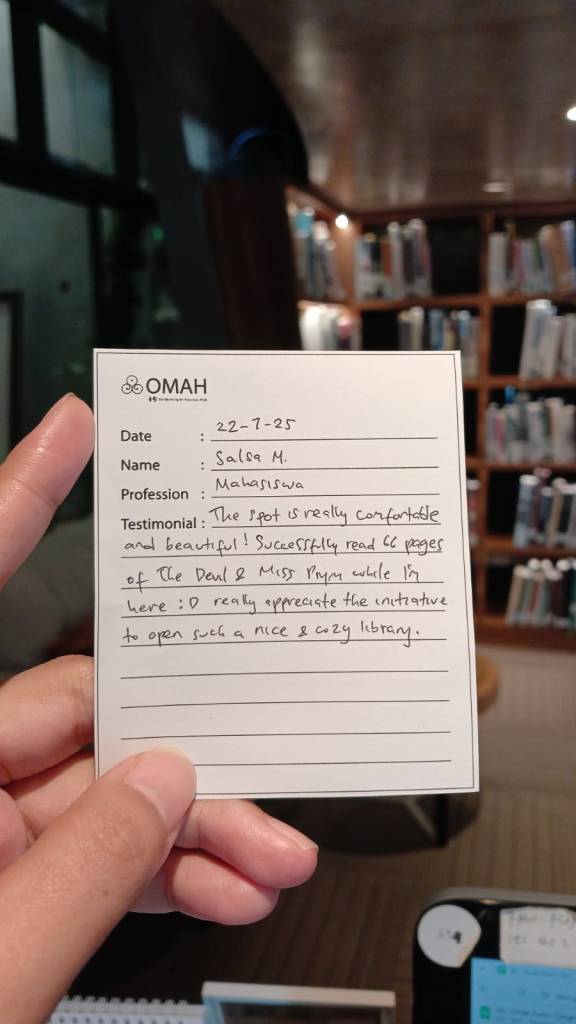 OMAH
Date : 22-7-25
Name : Salsa M.
Profession : Mahasiswa
Testimonial : The spot is really comfortable
and beautiful! Successfully read 66 pages
of The Devil & Miss Prym while I'm
here :D really appreciate the initiative
to open such a nice & cozy library.